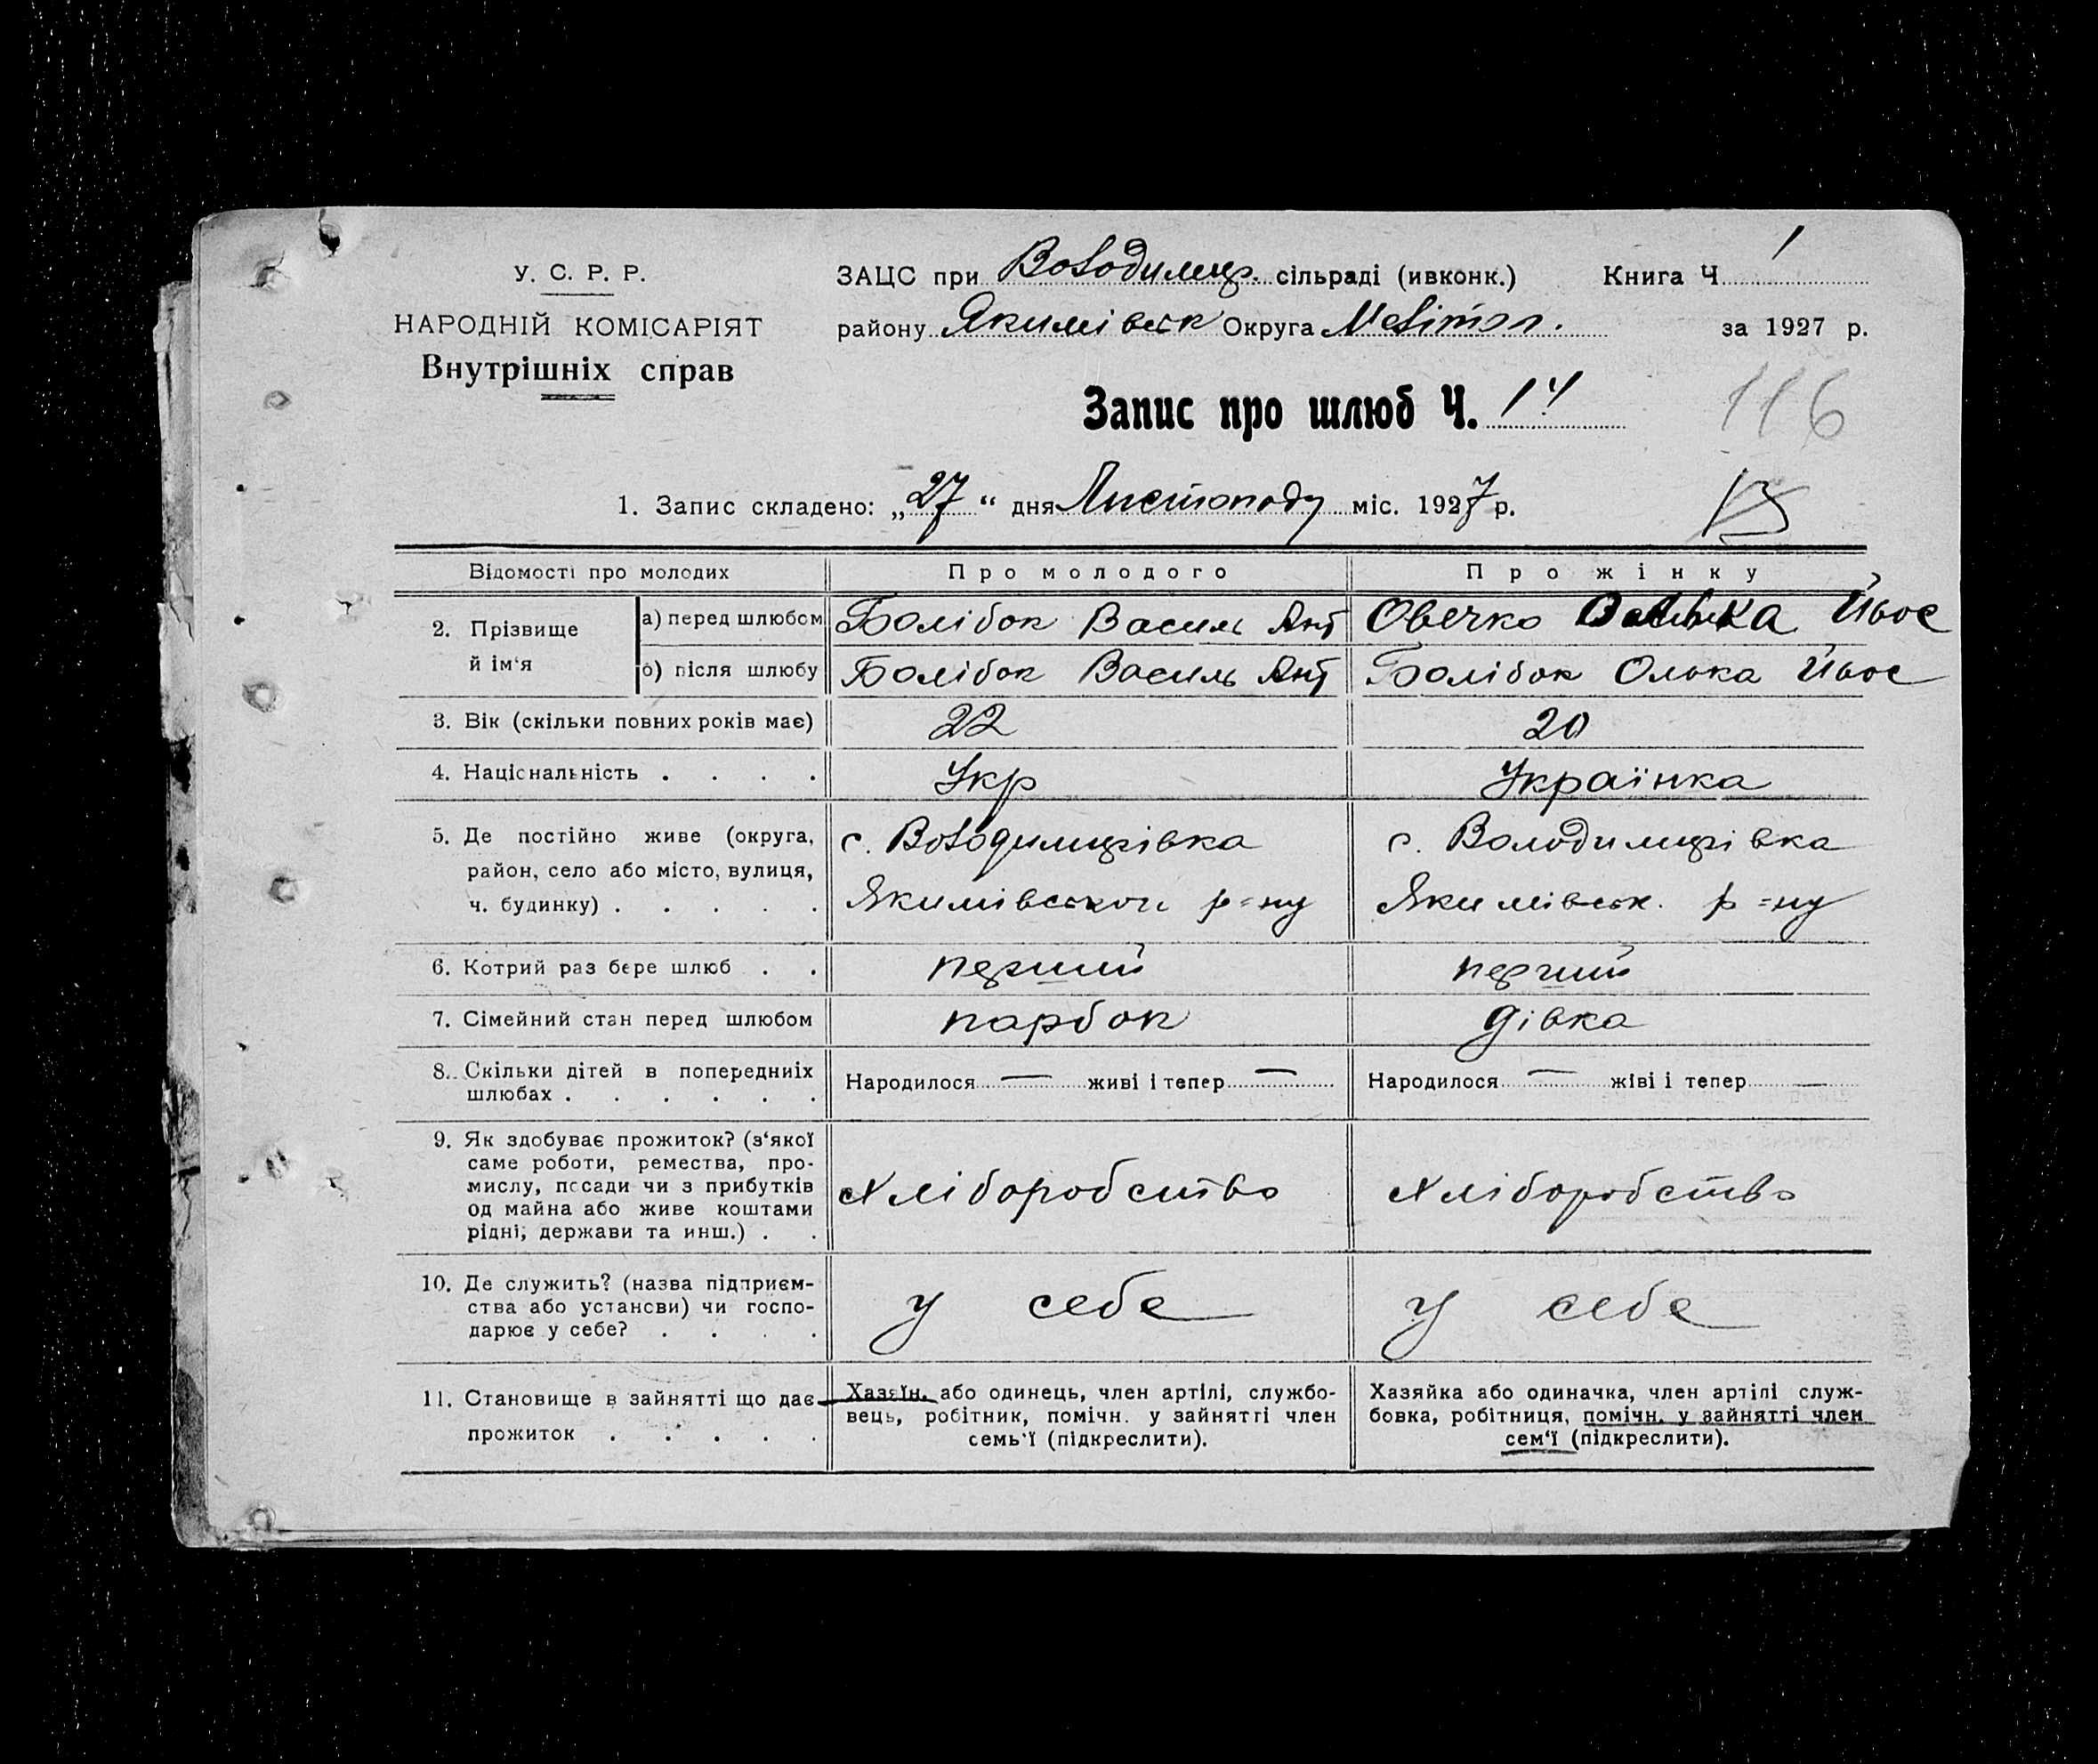 У. С. Р. Р.
НАРОДНІЙ КОМІСАРІЯТ
Внутрішніх справ
ЗАЦС при Володимир. сільраді (ивконк.) Книга Ч. 1
району Якимівськ Округа Меліто́п. за 1927 р.
Запис про шлюб Ч. 14
116
1. Запис складено: „27“ дня Листопаду міс. 1927 р.
Відомості про молодих Про молодого Про жінку
2. Прізвище й ім‘я
а) перед шлюбом Болібок Василь Ант Овечко Олька Йвос
б) після шлюбу Болібок Василь Ант Болібок Олька Йвос
3. Вік (скільки повних років має) 22 20
4. Національність . . . . Укр Українка
5. Де постійно живе (округа, район, село або місто, вулиця, ч. будинку) . . . . .
с. Володимирівка
Якимівського р=ну
с. Володимирівка
Якимівськ. р=ну
6. Котрий раз бере шлюб . . перший перший
7. Сімейний стан перед шлюбом парубок дівка
8. Скільки дітей в попередніх шлюбах . . . . . .
Народилося — живі і тепер —
Народилося — жіві і тепер —
9. Як здобуває прожиток? (з‘якої
саме роботи, ремества, про-
мислу, посади чи з прибутків
од майна або живе коштами
рідні, держави та инш.) . .
хліборобство хліборобство
10. Де служить? (назва підприєм-
ства або установи) чи госпо-
дарює у себе? . . . .
у себе у себе
11. Становище в зайнятті що дає
прожиток . . . . .
Хазяїн, або одинець, член артілі, службо-
вець, робітник, помічн. у зайнятті член
семь‘ї (підкреслити).
Хазяйка або одиначка, член артілі служ-
бовка, робітниця, помічн. у зайнятті член
сем‘ї (підкреслити).